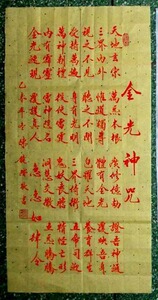 金光神咒
天地玄宗 萬炁本根 廣修億劫 證吾神通
三界內外 惟道獨尊 體有金光 覆映吾身
視之不見 聽之不聞 包羅天地 養育群生
受持萬遍 身有光明 三界侍衛 五帝司迎
萬神朝禮 役使雷霆 鬼妖喪膽 精怪亡形
內有霹靂 雷神隱名 洞慧交徹 五炁騰騰
金光速現 覆護真人 急急如律令
乙未年冬 陳 敬書